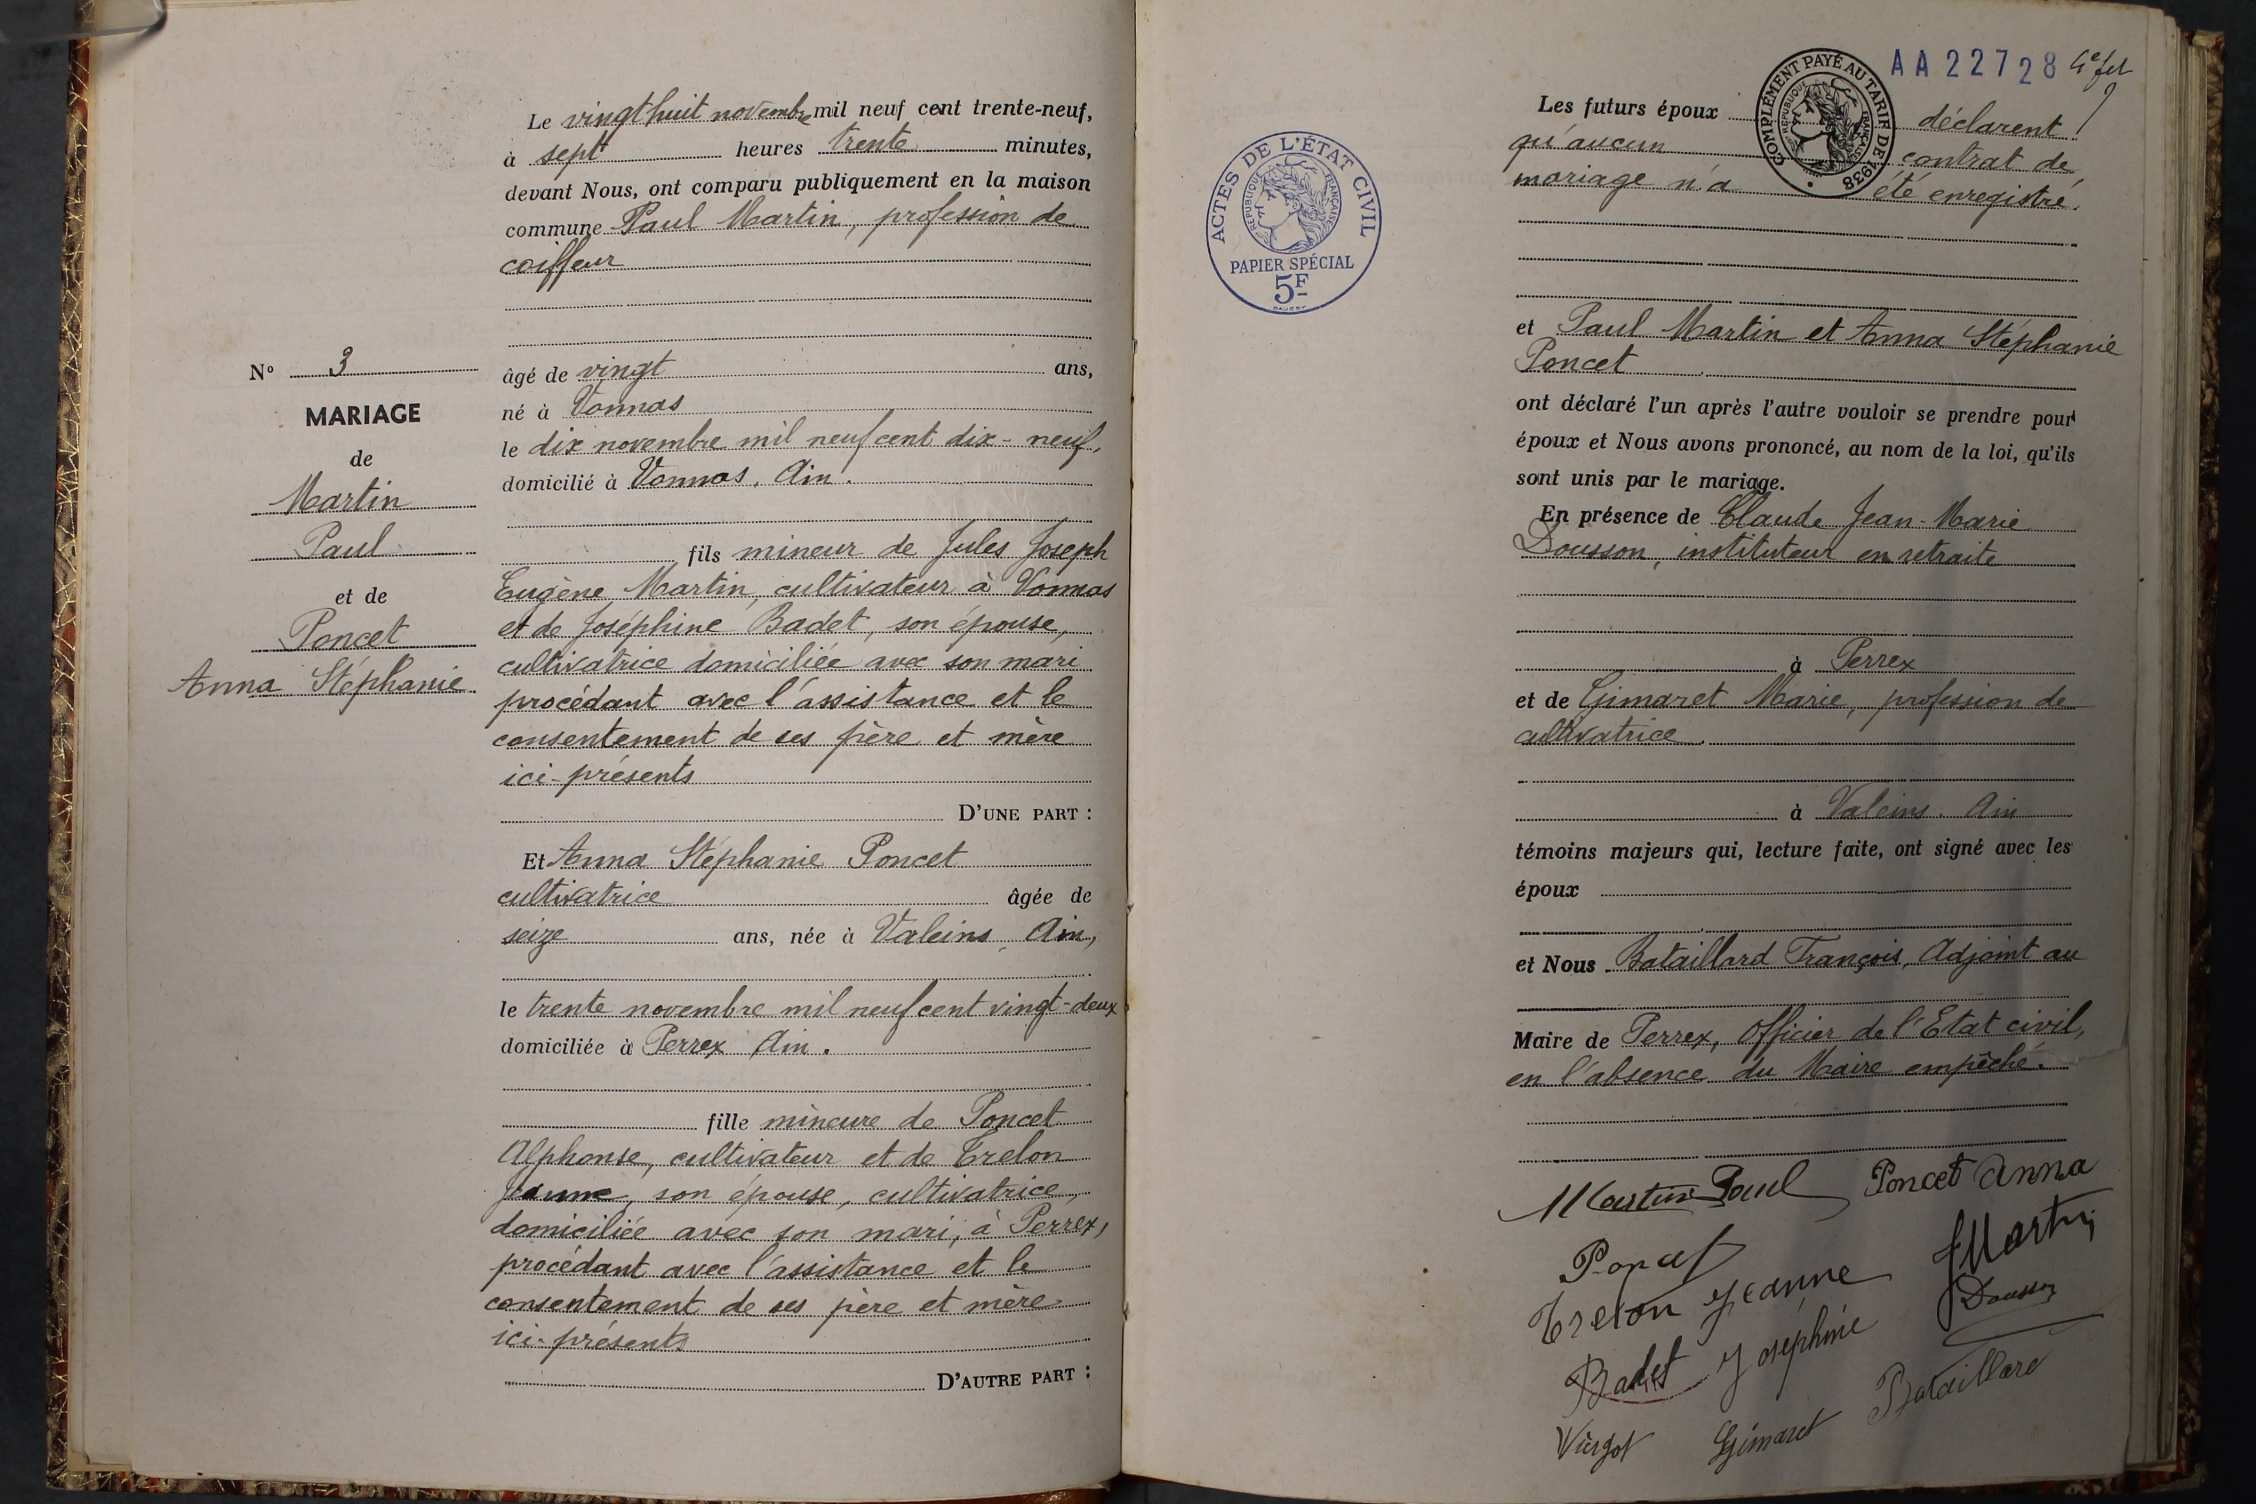 Le vingt huit novembre mil neuf cent trente-neuf,
à sept heures trente minutes,
devant Nous, ont comparu publiquement en la maison
commune Paul Martin, profession de
coiffeur
âgé de vingt ans,
né à Vonnas
le dix novembre mil neuf cent dix-neuf,
domicilié à Vonnas. Ain.
fils mineur de Jules Joseph
Eugène Martin, cultivateur à Vonnas
et de Joséphine Badet, son épouse,
cultivatrice domiciliée avec son mari
procédant avec l'assistance et le
consentement de ses père et mère
ici-présents
D'UNE PART :
Et Anna Stéphanie Poncet
cultivatrice âgée de
seize ans, née à Valeins, Ain,
le trente novembre mil neuf cent vingt-deux
domiciliée à Perrex Ain.
fille mineure de Poncet
Alphonse, cultivateur et de Trelon
Jeanne, son épouse, cultivatrice,
domiciliée avec son mari, à Perrex,
procédant avec l'assistance et le
consentement de ses père et mère
ici-présents
D'AUTRE PART :
N° 3
MARIAGE
de
Martin
Paul
et de
Poncet
Anna Stéphanie
ACTES DE L'ÉTAT CIVIL
RÉPUBLIQUE FRANÇAISE
PAPIER SPÉCIAL
5F
AA22728 4e fet
COMPLÉMENT PAYÉ AU TARIF DE 1938
RÉPUBLIQUE FRANÇAISE
Les futurs époux déclarent
qu'aucun contrat de
mariage n'a été enregistré.
et Paul Martin et Anna Stéphanie
Poncet
ont déclaré l'un après l'autre vouloir se prendre pour
époux et Nous avons prononcé, au nom de la loi, qu'ils
sont unis par le mariage.
En présence de Claude Jean-Marie
Dousson, instituteur en retraite
à Perrex
et de Gimaret Marie, profession de
cultivatrice
à Valeins. Ain
témoins majeurs qui, lecture faite, ont signé avec les
époux
et Nous Bataillard François, Adjoint au
Maire de Perrex, Officier de l'Etat civil,
en l'absence du Maire empêché.
Martin Paul Poncet Anna
Poncet JMartin
Trelon Jeanne Dousson
Badet Joséphine
Gimaret Bataillard